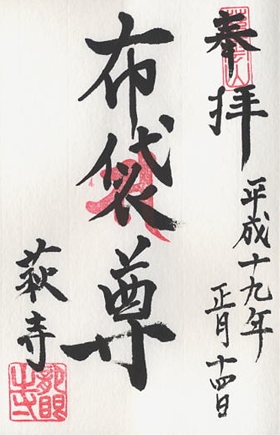 奉拝
平成十九年
正月十四日
布袋尊
萩寺